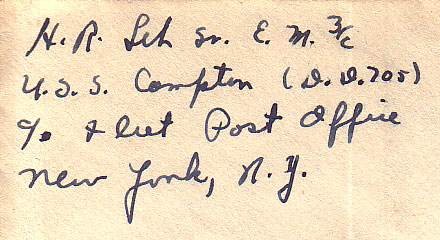 H. R. Leh Sr. E. M. 3/c
U.S.S. Compton (D.D.705)
% Fleet Post Office
New York, N.Y.